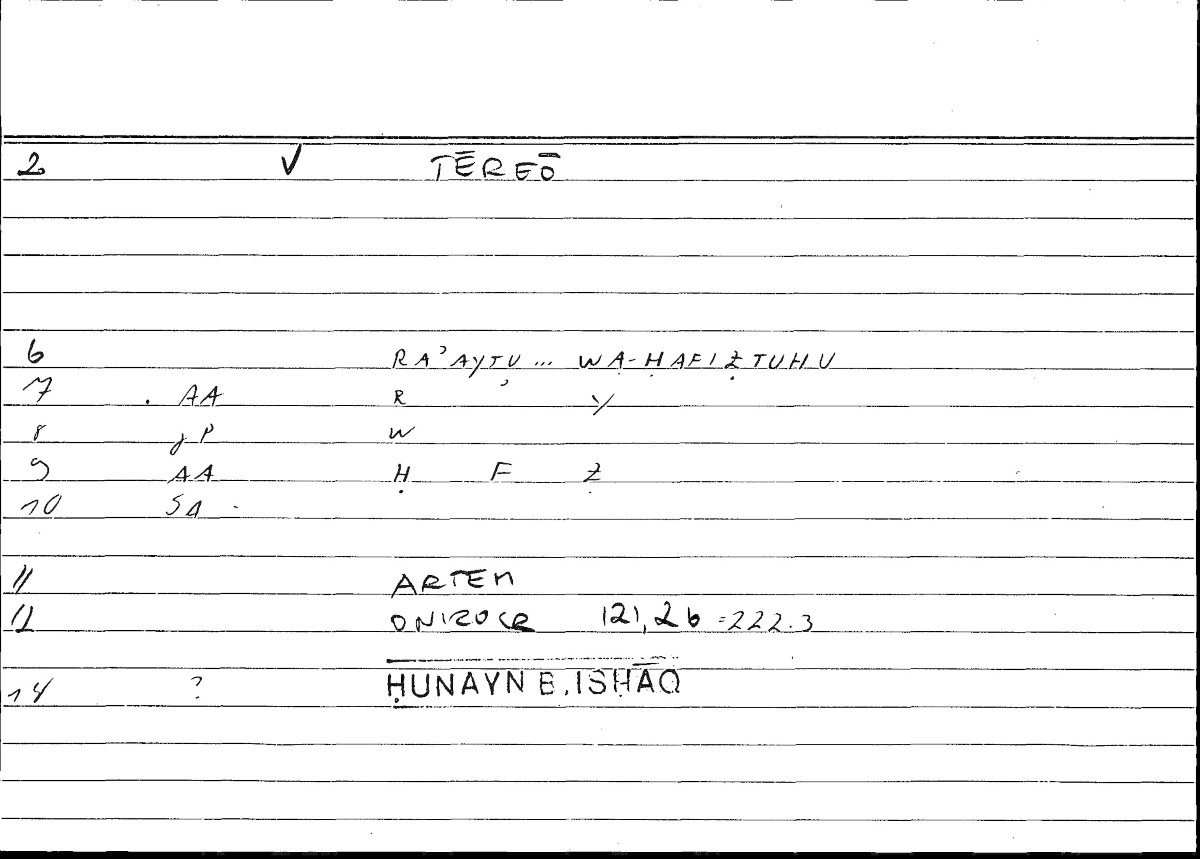 2 √ TĒREŌ
6 RAʾAYTU ... WA-ḤAFIẒTUHU
7 . AA R ʾ Y
8 gP W
9 AA Ḥ F Ẓ
10 SA
11 ARTEM
12 ONIROCR 121,26 =222.3
14 ? ḤUNAYN B. ISḤĀQ